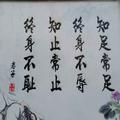 知足常足
終身不辱
知止常止
終身不耻
老子